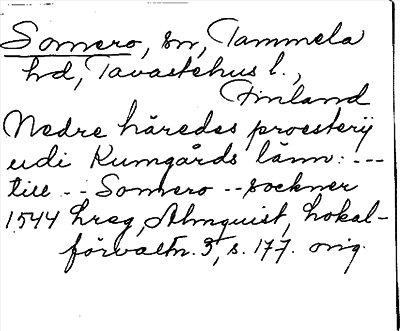 Somero, sn, Tammela
hd, Tavastehus l.,
Finland
Nedre häredes proesterij
udi Kumgårds länn: ---
till -- Somero -- sockner
1544 hreg, Almquist, Lokal-
förvaltn. 3, s. 177. orig.